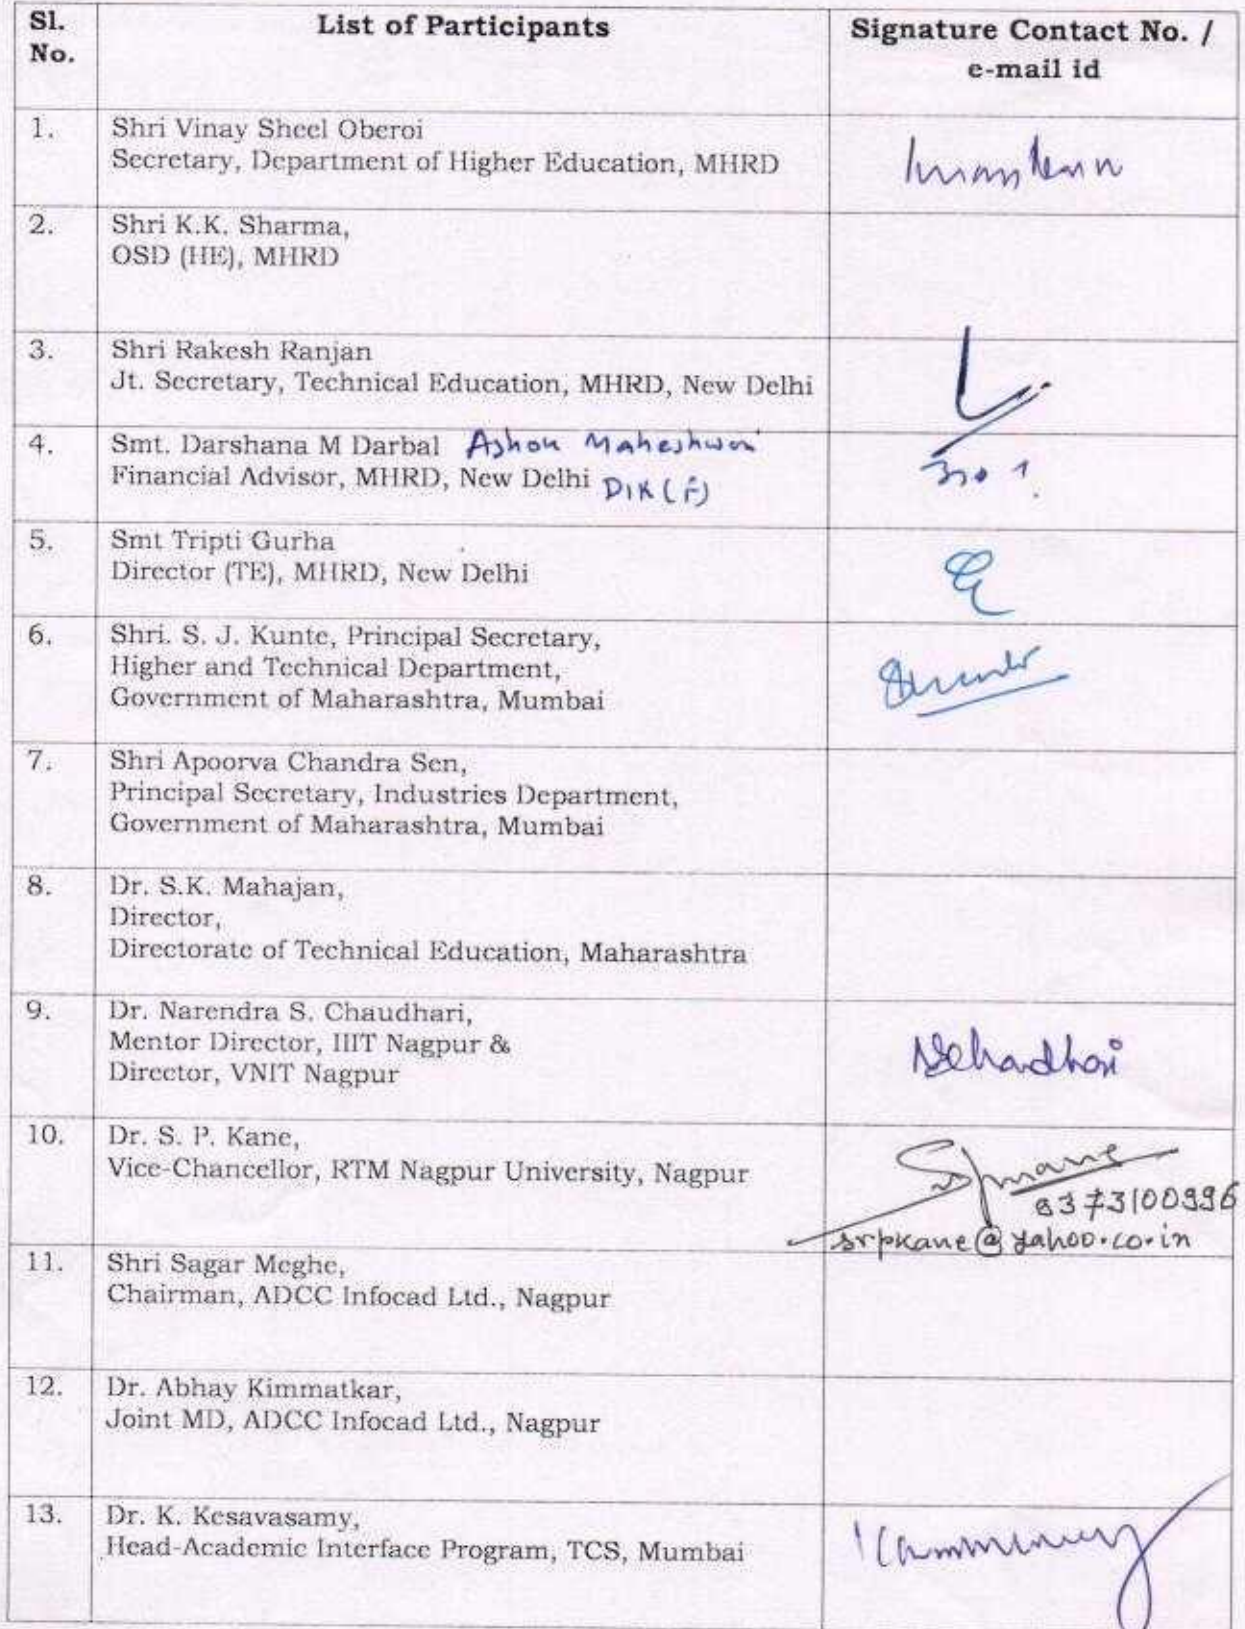 Sl. No.
List of Participants
Signature Contact No. /
e-mail id
1.
Shri Vinay Sheel Oberoi
Secretary, Department of Higher Education, MHRD
2.
Shri K.K. Sharma,
OSD (HE), MHRD
3.
Shri Rakesh Ranjan
Jt. Secretary, Technical Education, MHRD, New Delhi
4.
Smt. Darshana M Darbal Ashok Maheshwari
Financial Advisor, MHRD, New Delhi DIR (F)
5.
Smt Tripti Gurha
Director (TE), MHRD, New Delhi
6.
Shri. S. J. Kunte, Principal Secretary,
Higher and Technical Department,
Government of Maharashtra, Mumbai
7.
Shri Apoorva Chandra Sen,
Principal Secretary, Industries Department,
Government of Maharashtra, Mumbai
8.
Dr. S.K. Mahajan,
Director,
Directorate of Technical Education, Maharashtra
9.
Dr. Narendra S. Chaudhari,
Mentor Director, IIIT Nagpur &
Director, VNIT Nagpur
10.
Dr. S. P. Kane,
Vice-Chancellor, RTM Nagpur University, Nagpur
srpkane@yahoo.co.in
11.
Shri Sagar Meghe,
Chairman, ADCC Infocad Ltd., Nagpur
12.
Dr. Abhay Kimmatkar,
Joint MD, ADCC Infocad Ltd., Nagpur
13.
Dr. K. Kesavasamy,
Head-Academic Interface Program, TCS, Mumbai